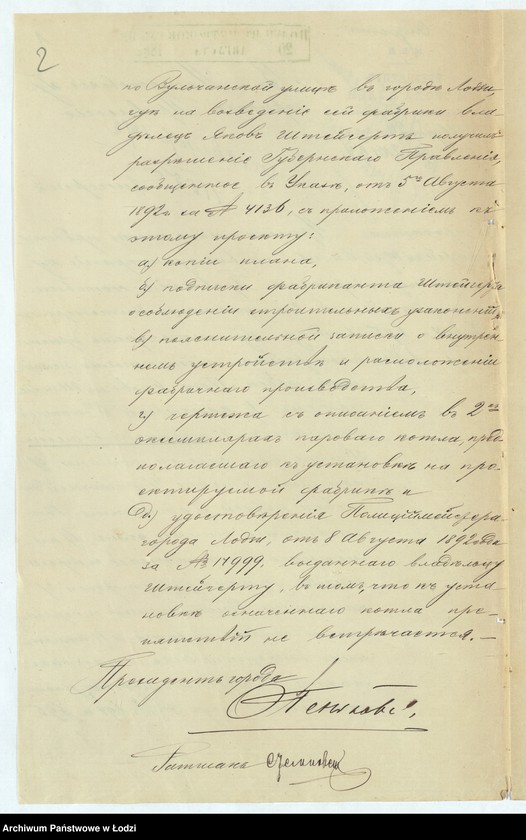 2
по Вульчанской улицѣ въ городѣ Лодзи
на возведеніе сей фабрики вла-
дѣлецъ Яковъ Штейгертъ получилъ
разрѣшеніе Губернскаго Правленія,
сообщенное въ Указѣ, отъ 5го Августа
1892 за № 4136, съ приложеніемъ къ
этому проэкту:
а) копіи плана,
б) подписки фабриканта Штейгерта
о соблюденіи строительныхъ узаконеній,
в) пояснительной записки о внутрен-
немъ устройствѣ и расположеніи
фабричнаго производства,
г) чертежа съ описаніемъ въ 2хъ
экземплярахъ пароваго котла, предо-
полагаемаго къ установкѣ на про-
эктируемой фабрикѣ и
д) удостовѣренія Полиціймейстера
города Лодзи, отъ 8 Августа 1892 года
за № 17999, выданнаго владѣльцу
Штейгерту, въ томъ, что къ уста-
новкѣ означеннаго котла пре-
пятствій не встрѣчается. —
Президентъ города
Пеньковск
Archiwum Państwowe w Łodzi